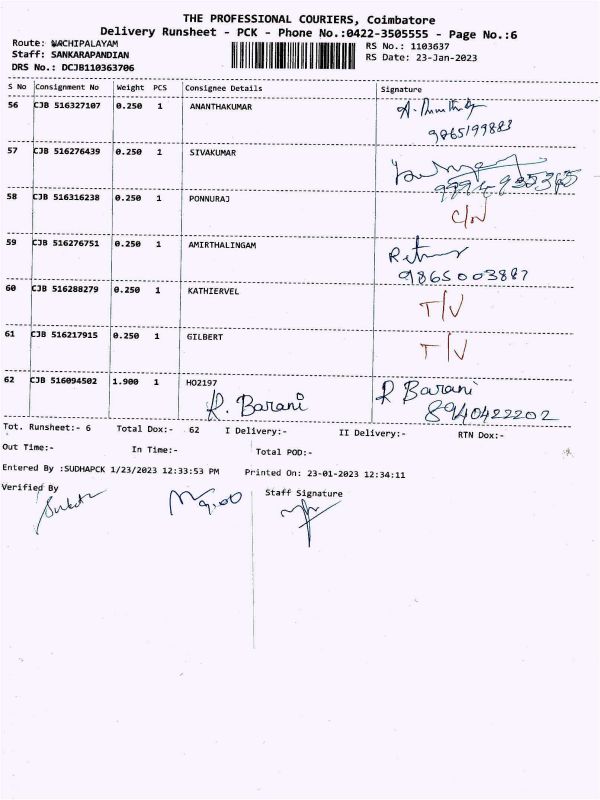 THE PROFESSIONAL COURIERS, Coimbatore
Delivery Runsheet - PCK - Phone No.:0422-3505555 - Page No.:6
Route: WACHIPALAYAM
Staff: SANKARAPANDIAN
DRS No.: DCJB110363706
RS No.: 1103637
RS Date: 23-Jan-2023
S No Consignment No Weight PCS Consignee Details Signature
56 CJB 516327107 0.250 1 ANANTHAKUMAR
9865199883
57 CJB 516276439 0.250 1 SIVAKUMAR
58 CJB 516316238 0.250 1 PONNURAJ C/N
59 CJB 516276751 0.250 1 AMIRTHALINGAM
9865003887
60 CJB 516288279 0.250 1 KATHIERVEL T/V
61 CJB 516217915 0.250 1 GILBERT T/V
62 CJB 516094502 1.900 1 HO2197 R Barani
R. Barani 8940422202
Tot. Runsheet:- 6 Total Dox:- 62 I Delivery:- II Delivery:- RTN Dox:-
Out Time:- In Time:- Total POD:-
Entered By :SUDHAPCK 1/23/2023 12:33:53 PM Printed On: 23-01-2023 12:34:11
Verified By Staff Signature